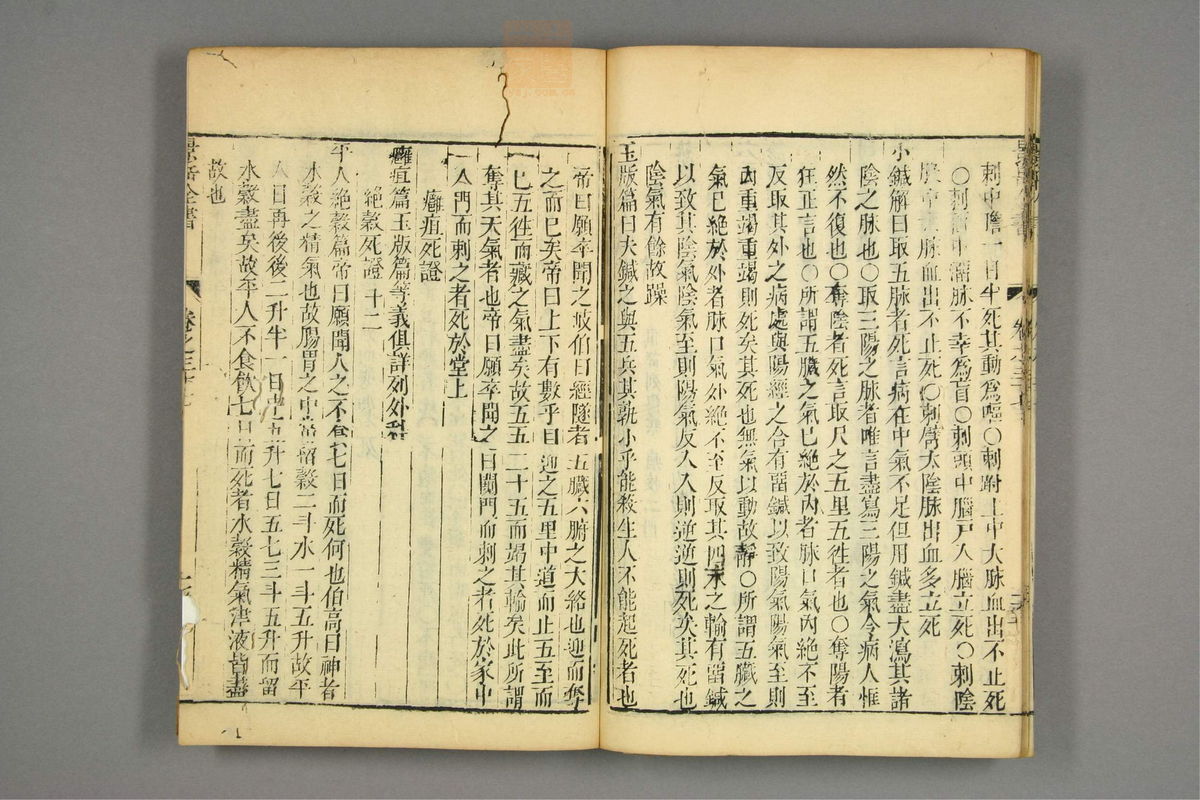 刺中膽一日半死其動爲嘔〇刺跗上中大脉血出不止死
〇刺面中溜脉不幸爲盲〇刺頭中腦戸入腦立死〇刺陰
股中大脉血出不止死〇刺臂太陰脉出血多立死
小鍼解曰取五脉者死言病在中氣不足但用鍼盡大瀉其諸
陰之脉也〇取三陽之脉者唯言盡寫三陽之氣令病人恇
然不復也〇奪陰者死言取尺之五里五徃者也〇奪陽者
狂正言也〇所謂五臟之氣已絶於內者脉口氣內絶不至
反取其外之病處與陽經之合有畱鍼以致陽氣陽氣至則
內重竭重竭則死矣其死也無氣以動故靜〇所謂五臟之
氣已絶於外者脉口氣外絶不至反取其四末之輸有畱鍼
以致其陰氣陰氣至則陽氣反入入則逆逆則死矣其死也
陰氣有餘故躁
玉版篇曰夫鍼之與五兵其孰小乎能殺生人不能起死者也
帝曰願卒聞之岐伯曰經隧者五臟六腑之大絡也迎而奪
之而已矣帝曰上下有數乎曰迎之五里中道而止五至而
已五徃而藏之氣盡矣故五五二十五而竭其輸矣此所謂
奪其天氣者也帝曰願卒聞之曰闚門而刺之者死於家中
入門而刺之者死於堂上
癰疽死證
癰疽篇玉版篇等義俱詳列外科
絶穀死證 十二
平人絶穀篇帝曰願聞人之不食七日而死何也伯高曰神者
水穀之精氣也故腸胃之中當留穀二斗水一斗五升故平
人日再後後二升半一日中五升七日五七三斗五升而留
水穀盡矣故平人不食飮七日而死者水穀精氣津液皆盡
故也
景岳全書